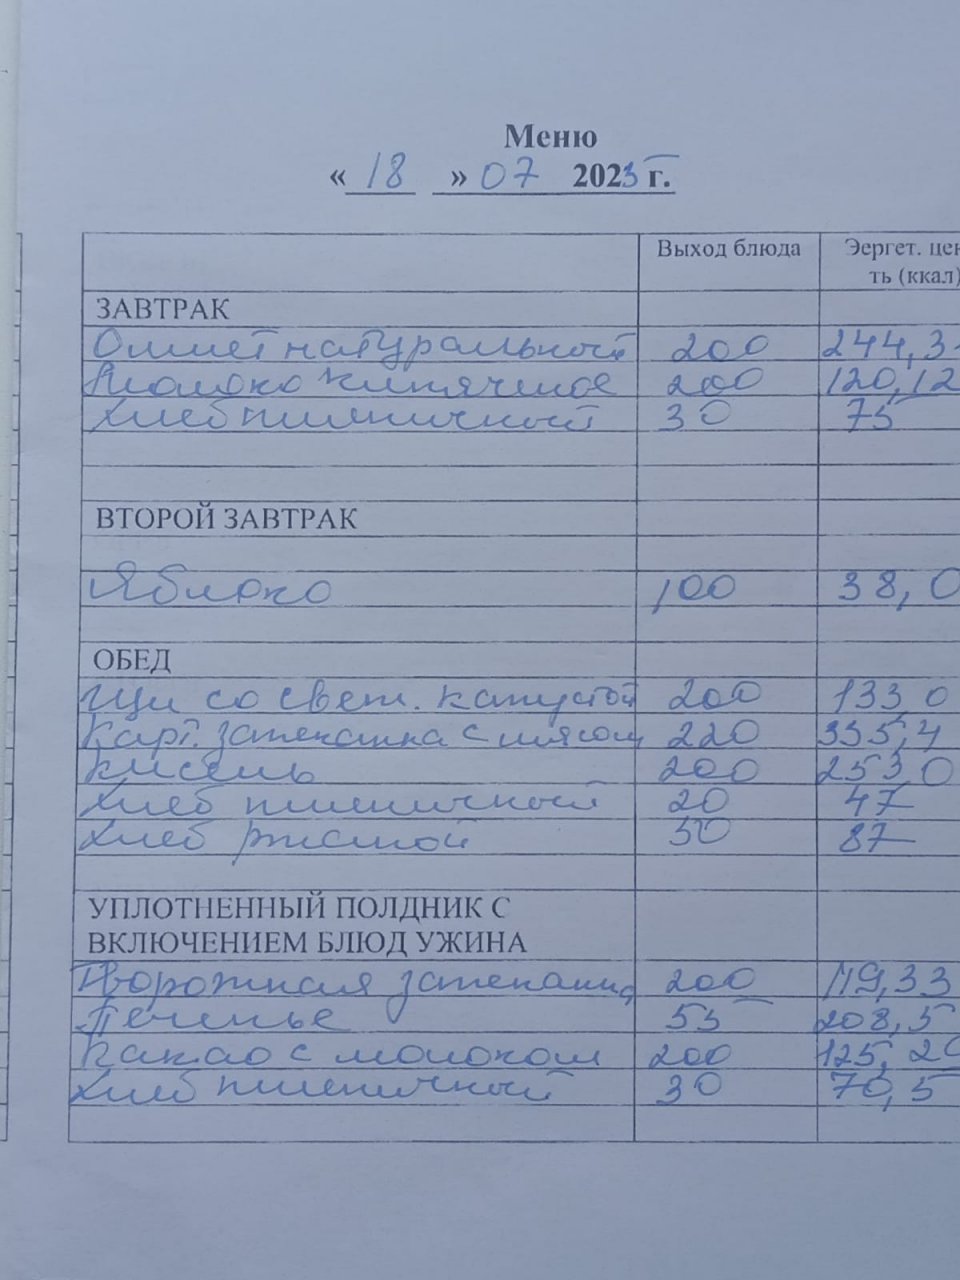 Меню
« 18 » 07 2025 г.
Выход блюда Эергет. цен
ть (ккал)
ЗАВТРАК
Омлет натуральный 200 244,3
Молоко кипяченое 200 120,12
Хлеб пшеничный 30 75
ВТОРОЙ ЗАВТРАК
Яблоко 100 38,0
ОБЕД
Щи со свеж. капустой 200 133,0
Карт. запеканка с мясом 220 335,4
Кисель 200 253,0
Хлеб пшеничный 20 47
Хлеб ржаной 50 87
УПЛОТНЕННЫЙ ПОЛДНИК С
ВКЛЮЧЕНИЕМ БЛЮД УЖИНА
Творожная запеканка 200 119,33
Печенье 55 208,5
Какао с молоком 200 125, 20
Хлеб пшеничный 30 70,5